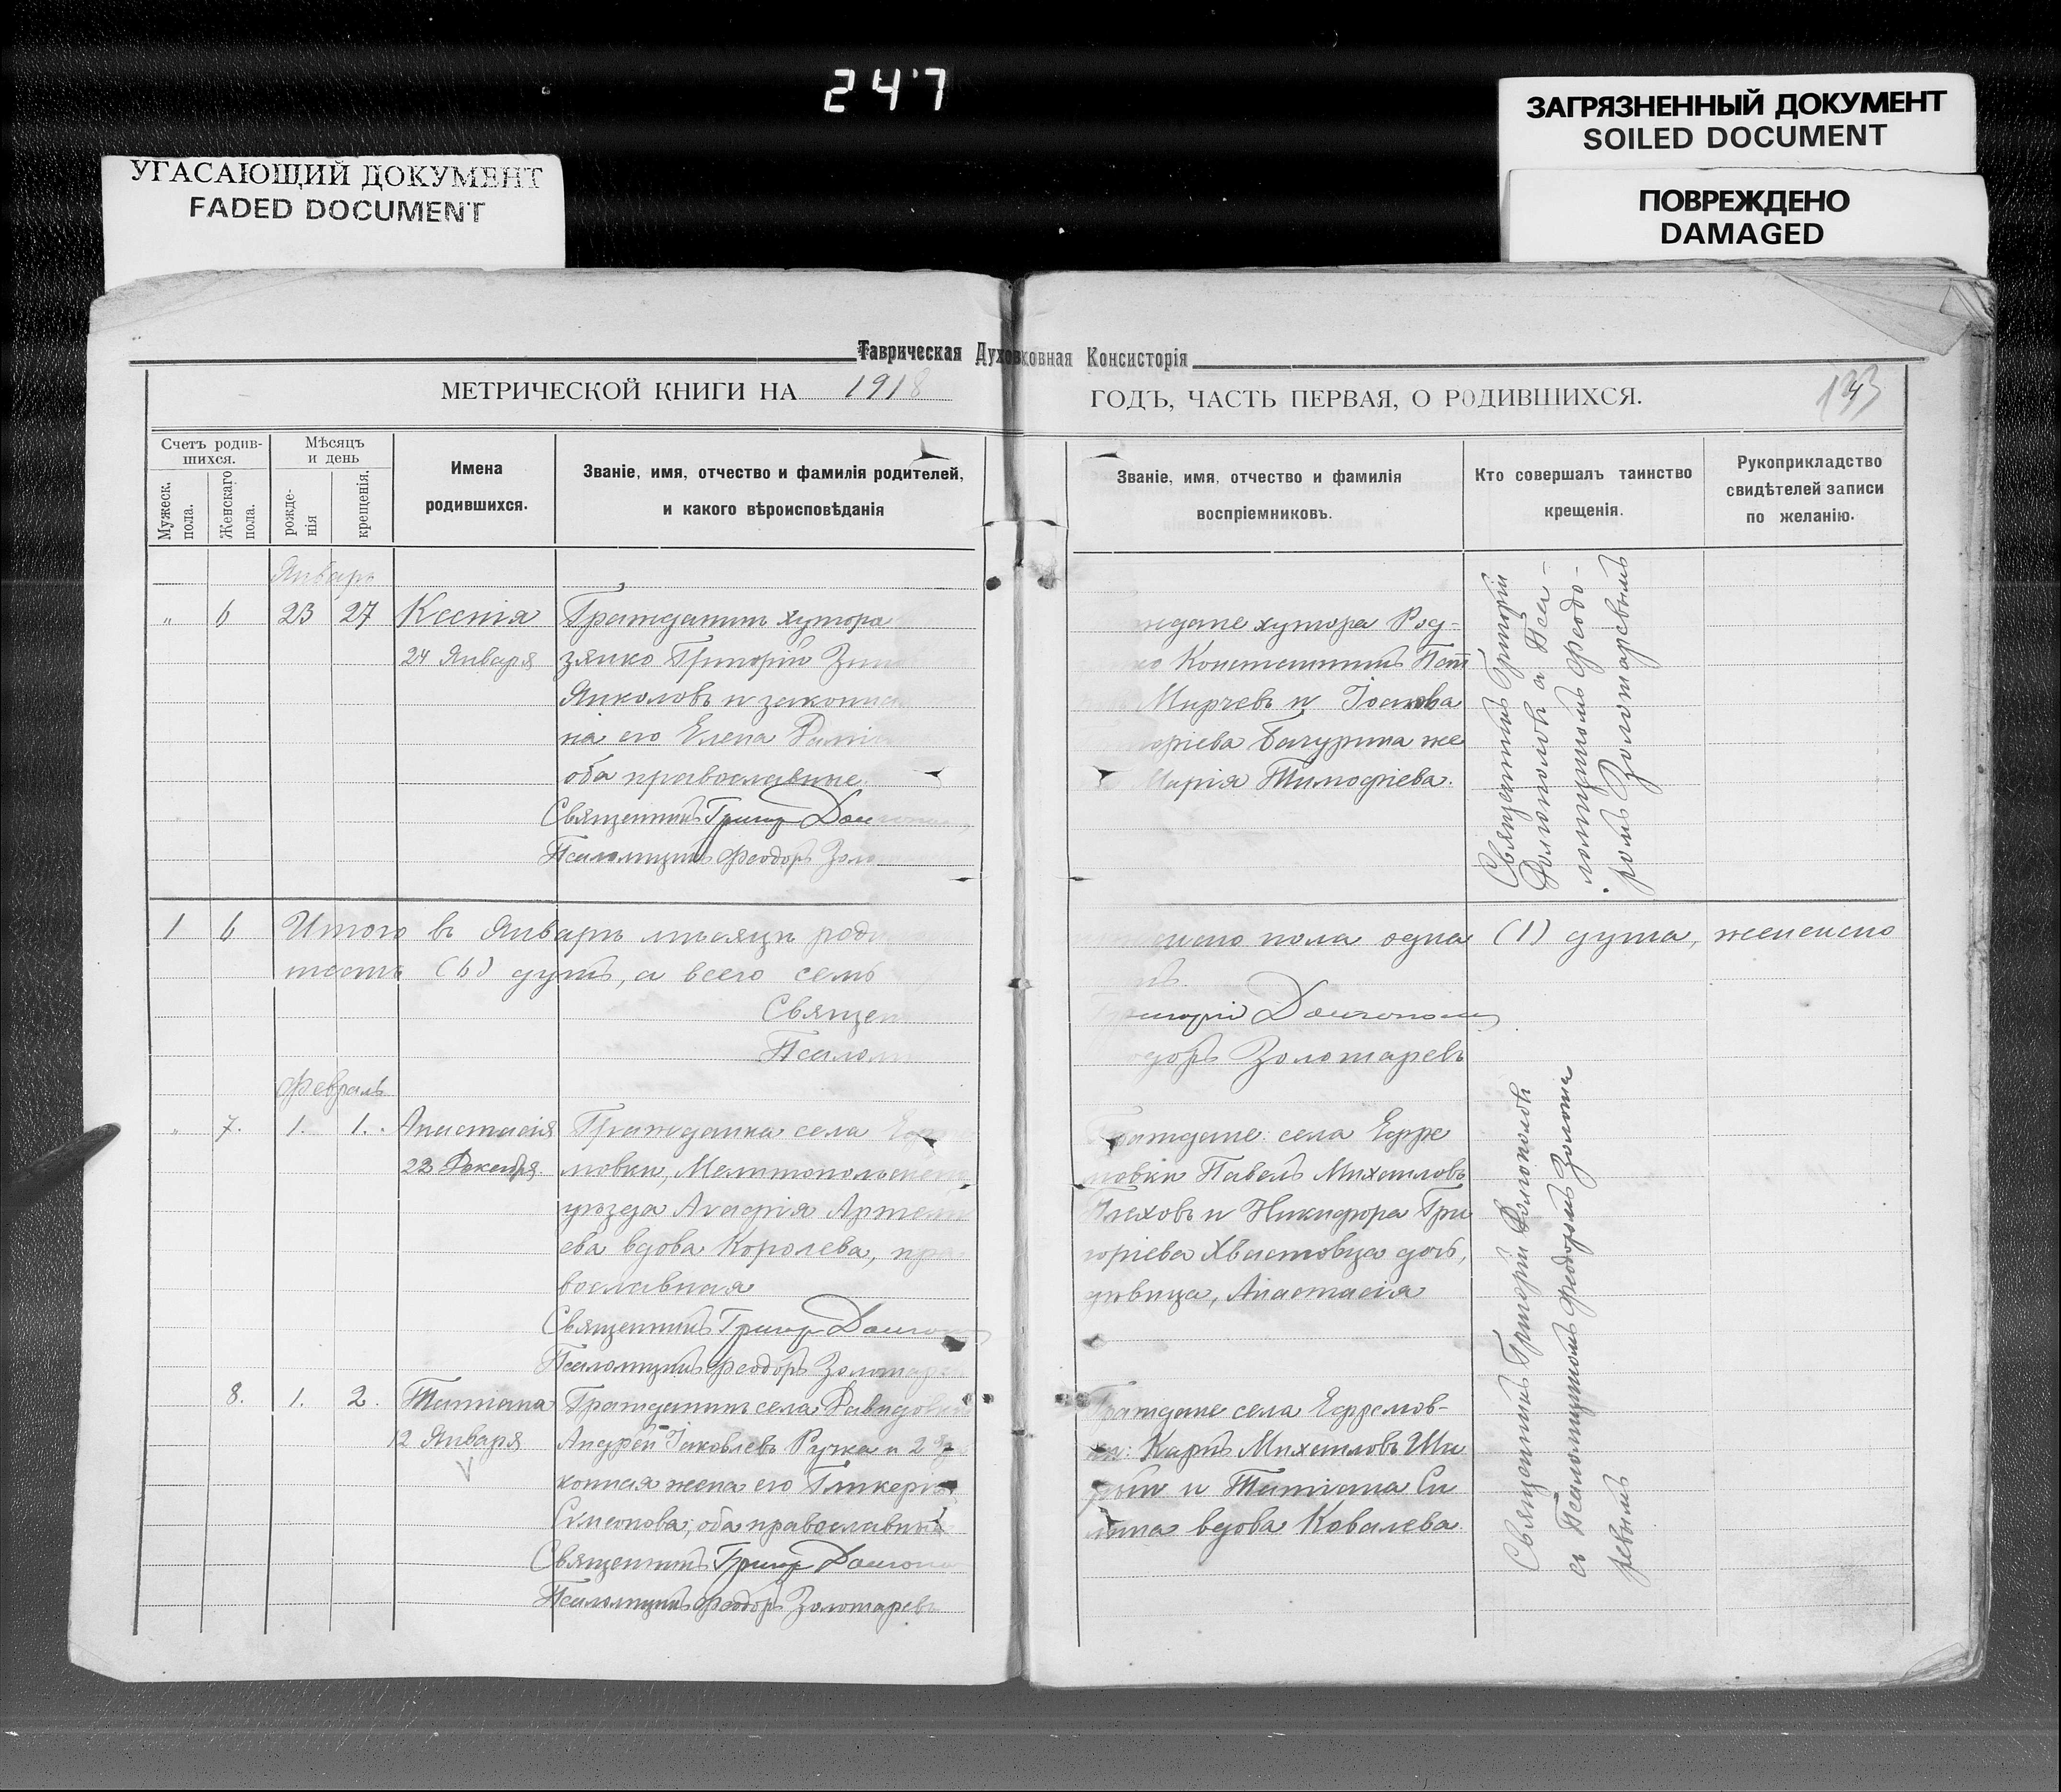 247
ЗАГРЯЗНЕННЫЙ ДОКУМЕНТ
SOILED DOCUMENT
УГАСАЮЩИЙ ДОКУМЕНТ
FADED DOCUMENT
ПОВРЕЖДЕНО
DAMAGED
Таврическая Духовная Консисторія
МЕТРИЧЕСКОЙ КНИГИ НА 1918
ГОДЪ, ЧАСТЬ ПЕРВАЯ, О РОДИВШИХСЯ.
Счетъ родив-
шихся.
Мужеск.
пола.
Женскаго
пола.
Мѣсяцъ
и день
рожде-
нія
крещенія.
Имена
родившихся.
Званіе, имя, отчество и фамилія родителей,
и какого вѣроисповѣданія
Званіе, имя, отчество и фамилія
воспріемниковъ.
Кто совершалъ таинство
крещенія.
Рукоприкладство
свидѣтелей записи
по желанію.
Январь
" 6 23 27 Ксенія
24 Января
Гражданинъ хутора
зянко Григорій
Янколовъ и законна
на его Елена
оба православные.
Священникъ Григор
Псаломщикъ Феодоръ Золо
ждане хутора Род-
ко Константинъ
Мирчевъ и Іоакова
горіева Бачурина же
Марія Тимофіева.
Священникъ Григорій
Долгополовъ а Псал-
ломщикомъ Феодо-
ромъ Золотаревымъ
1 6 Итого въ Январѣ мѣсяцѣ роди
шесть (6) душъ, а всего семь
Священ
Псалом
пола одна (1) душа, женскаго
Григорій Долгопол
одоръ Золотаревъ
Февраль
" 7. 1. 1. Анастасія
22 Декабря
Гражданка села Ефре
мовки, Мелитопольскаго
уѣзда Агафія Артемі
ева вдова Королева, пра
вославная
Священникъ Григор Долгопол
Псаломщикъ Феодоръ Золотаре
Граждане: села Ефре
мовки Павелъ Михаиловъ
и Никифора Гри
горіева Хвастовца дочь,
дѣвица, Анастасія
8. 1. 2. Татіана
12 Января
Гражданинъ села Давидовки
Андрей Іаковлевъ Ручка и
конная жена его Гликерія
Симеонова; оба православные
Священникъ Григор Долгопол
Псаломщикъ Феодоръ Золотаревъ
Граждане села Ефремов-
ки: Карпъ Михаиловъ
и Татіана
вдова Ковалева.
Священникъ Григорій Долгополовъ
съ Псаломщикомъ Феодоромъ Золота
ревымъ